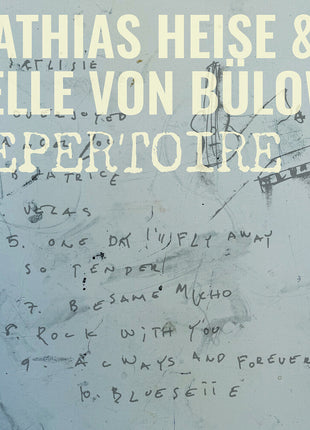 ATHIAS HEISE &
ELLE VON BÜLOW
EPERTOIRE
BEATRICE
VERAS
5. ONE DAY I'LL FLY AWAY
SO TENDER
7. BESAME MUCHO
8. ROCK WITH YOU
9. ALWAYS AND FOREVER
10. BLUESETTE